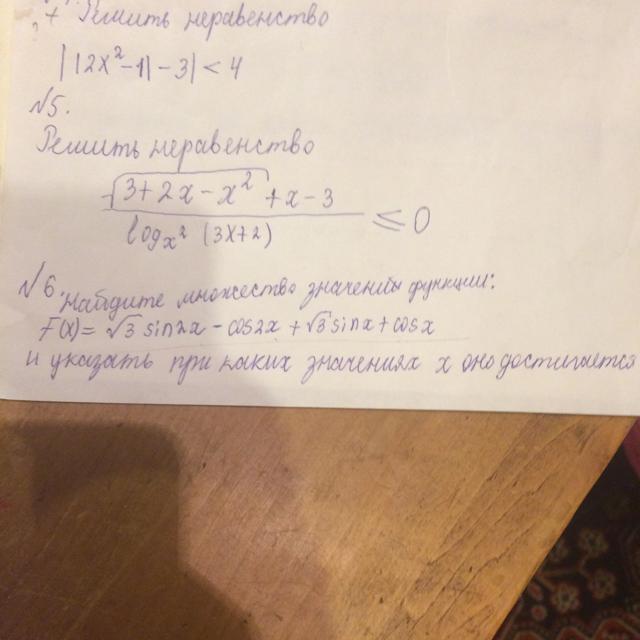 Решить неравенство
||2x²-1|-3|<4
№5.
Решить неравенство
√(3+2x-x²)+x-3
≤0
log_x² (3x+2)
№6. Найдите множество значений функции:
F(x)=√3 sin2x-cos2x+√3 sinx+cosx
и указать при каких значениях x оно достигается